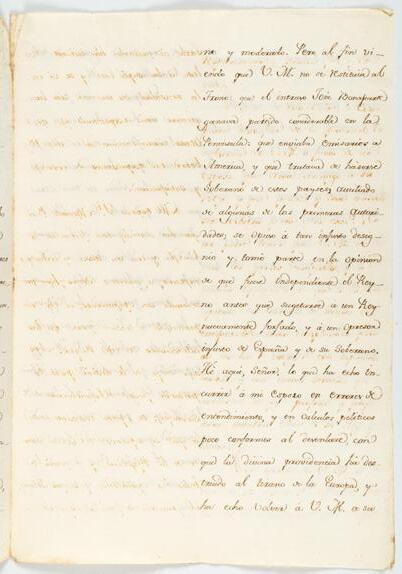 no y moderado. Pero al fin vi-
endo que V. M. no se restituia al
Trono: que el intruso José Bonaparte
ganava partido considerable en la
Peninsula: que enviaba emisarios a
America y que tratava de hacerse
Soberano de estos payses, auxiliado
de algunas de las primeras autori-
dades; se opuso á tan infame desig-
nio y tomó parte en la opinion
de que fuese Independiente el Rey-
no antes que sugetarse a un Rey
nuevamente forjado, y á un opresor
infame de España y de su Soberano.
He aqui, Señor, lo que ha echo in-
currir á mi Esposo en errores de
entendimiento, y en calculos politicos
poco conformes al desenlace, con
que la divina providencia ha des-
truido al tirano de la Europa, y
ha echo volver á V. M. a su